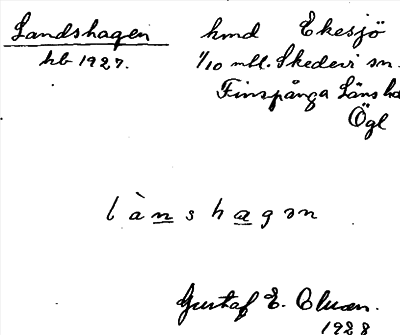 Landshagen hmd Ekesjö
hb 1927. 1/10 mtl. Skedevi sn.
Finspånga Läns hd
Ögl
lànshagən
Gustaf E. Clusen.
1928